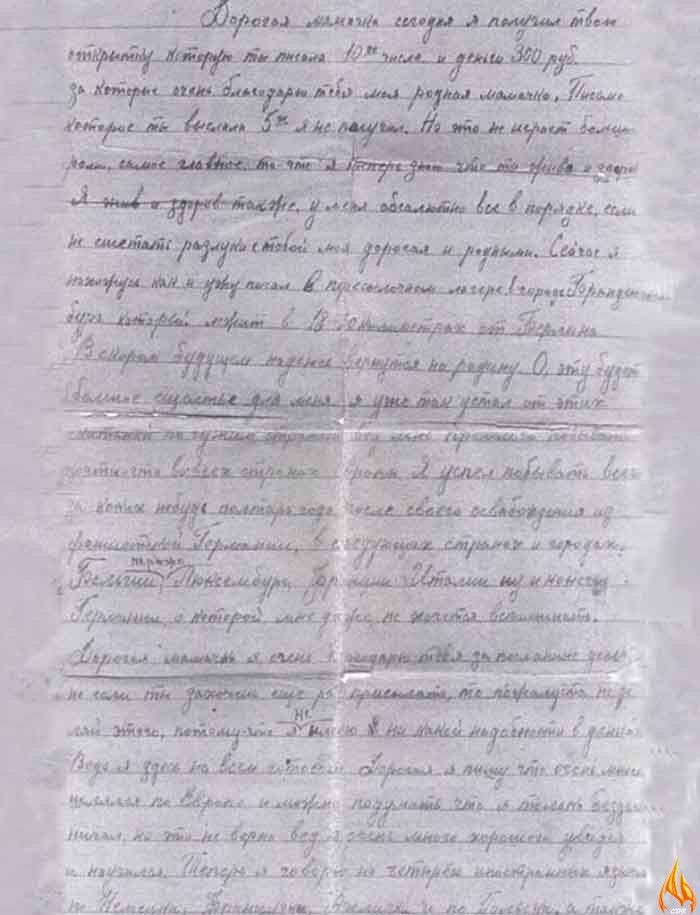 Дорогая мамочка сегодня я получил твою
открытку которую ты писала 10го числа и деньги 300 руб.
за которые очень благодарю тебя моя родная мамочка. Письмо
которое ты выслала 5го я не получил. Но это не играет большой
роли, самое главное, то что я теперь знаю что ты жива и здоро
Я жив и здоров также, у меня абсалютно все в порядке, если
не считать разлуки с тобой моя дорогая и родными. Сейчас я
нахожусь как и уже писал в пересылочном лагере в городе
бург который лежит в 18 километрах от Берлина
В скором будущем надеюсь вернутся на родину. О, эту будет
большое щастье для меня, я уже так устал от этих
по чужим странам мне пришлось побывать
почти что во всех странах Европы. Я успел побывать всего
за каких нибудь полтора года после своего освобождения из
фашисткой Германии, в следующих странах и городах.
Бельгии, париже Люксембург, Франции Италии ну и конечно
Германии о которой мне даже не хочется вспоминать.
Дорогая мамочка я очень благодарю тебя за посланые деньги
но если ты захочешь еще раз присылать, то пожалуста не де
лай этого, потому что я не имею ни какой надобности в деньгах
Ведь я здесь на всем готовом. Дорогая я пишу что очень много
по Европе и можно подумать что я только бездель
ничал, но это не верно ведь я очень много хорошего увидел
и научился. Теперь я говорю на четырех иностранных языках
по Немецки, Французски, и по Польски, а также